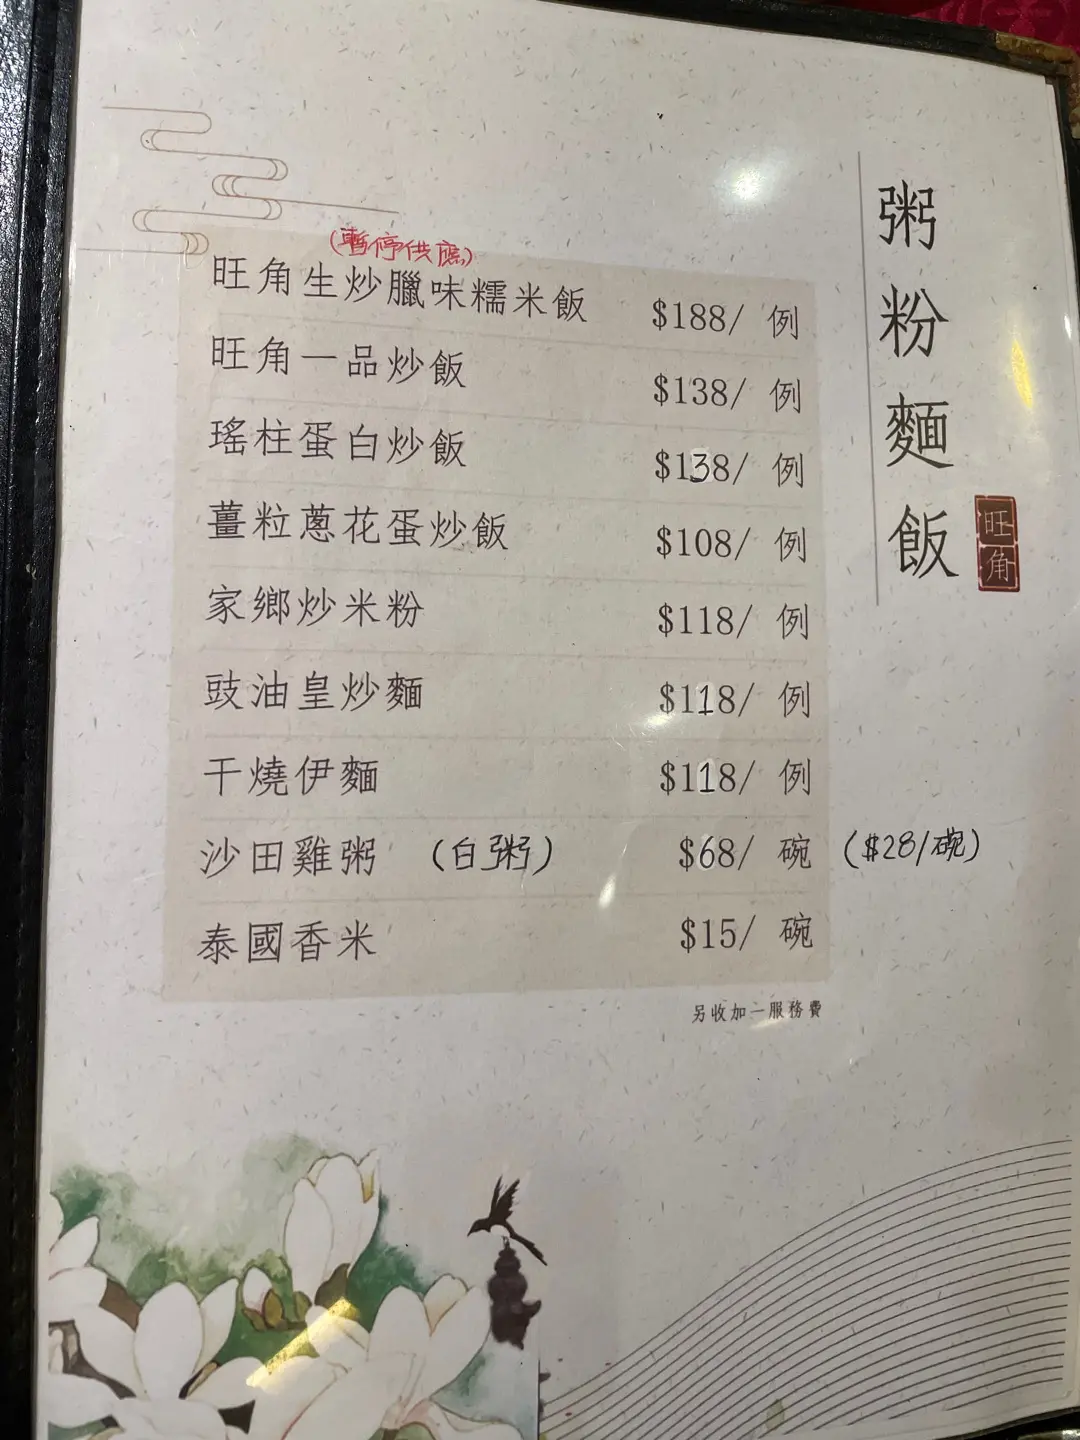 粥粉麵飯
旺角
(暫停供應)
旺角生炒臘味糯米飯 $188/ 例
旺角一品炒飯 $138/ 例
瑤柱蛋白炒飯 $138/ 例
薑粒蔥花蛋炒飯 $108/ 例
家鄉炒米粉 $118/ 例
豉油皇炒麵 $118/ 例
干燒伊麵 $118/ 例
沙田雞粥 (白粥) $68/ 碗 ($28/碗)
泰國香米 $15/ 碗
另收加一服務費